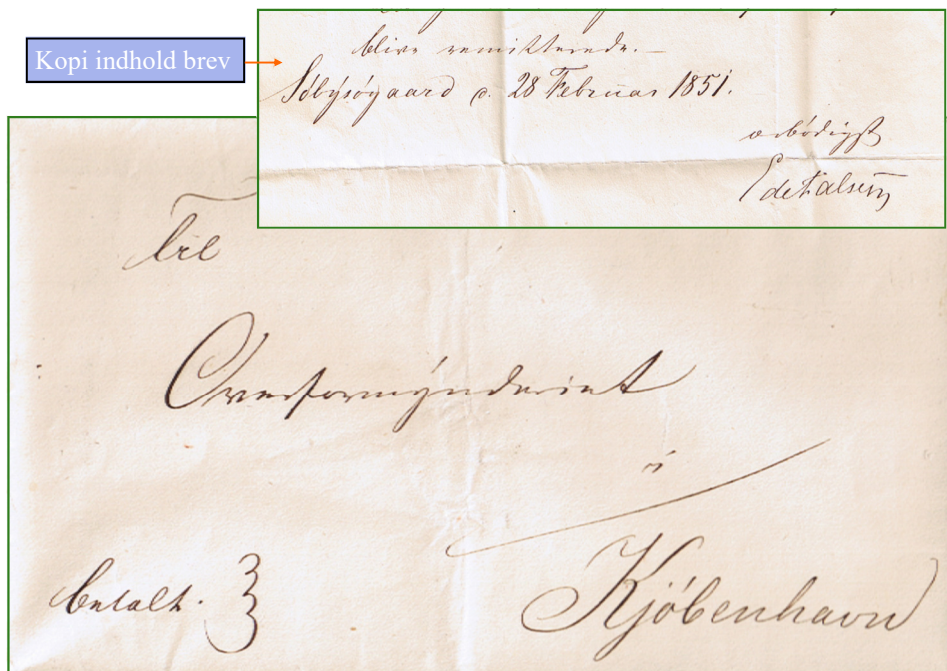 Kopi indhold brev
blive remitterede.—
Söbysögaard d. 28 Februar 1851.
ærbödigst
Til
Overformynderiet
i
betalt.
Kjöbenhavn